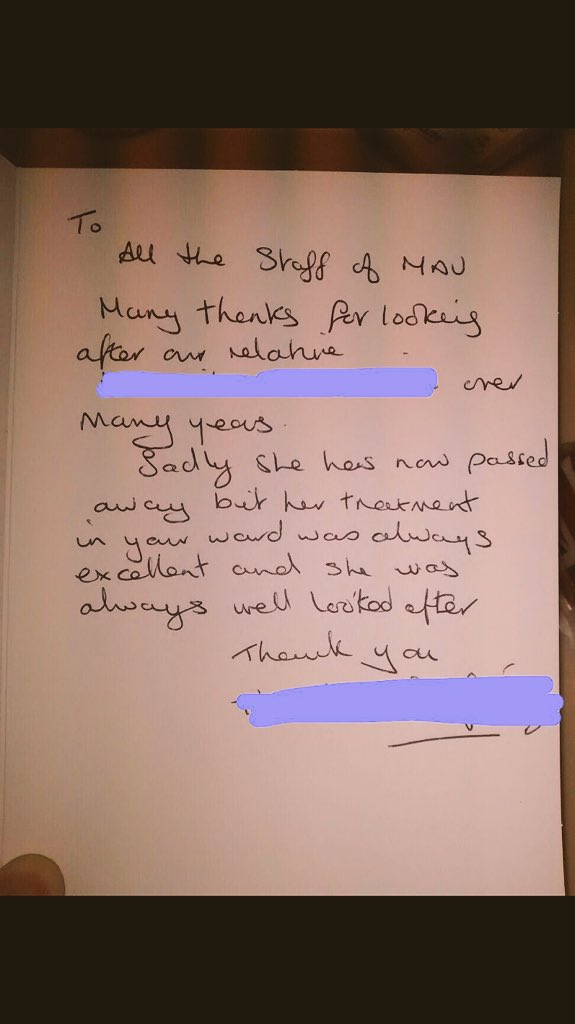 To
All the Staff of MAU
Many thanks for looking
after our relative
over
Many years.
Sadly she has now passed
away but her treatment
in your ward was always
excellent and she was
always well looked after
Thank you